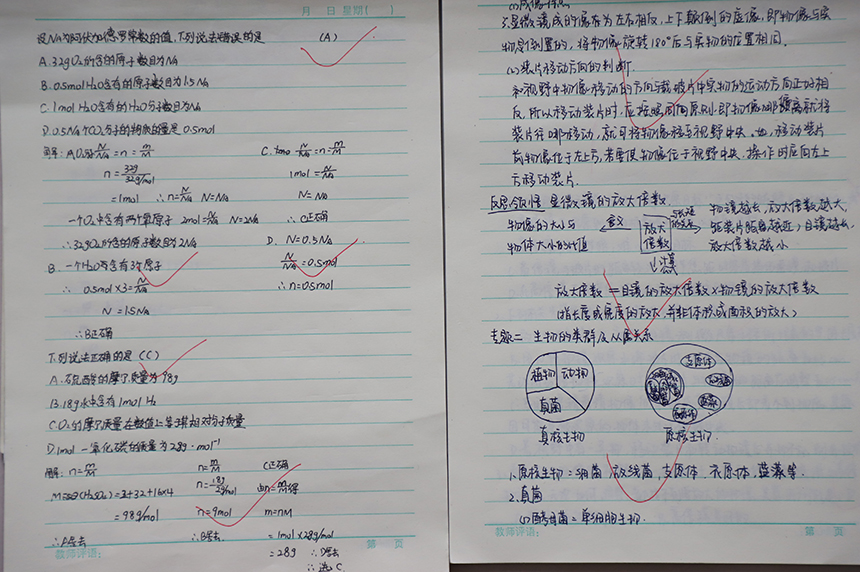 月 日 星期( )
设NA为阿伏加德罗常数的值,下列说法错误的是 (A)
A.32gO₂所含的原子数目为NA
B.0.5molH₂O含有的原子数目为1.5NA
C.1molH₂O含有的H₂O分子数目为NA
D.0.5NA个O₂分子的物质的量是0.5mol
解:A.O₂ N/NA=n=m/M
n=32g/32g/mol
=1mol ∴n=N/NA N=NA
一个O₂中含有两个氧原子 2mol=N/NA N=2NA
∴32gO₂所含的原子数目为2NA
B.一个H₂O含有3个原子
∴ 0.5mol×3=N/NA
N=1.5NA
∴B正确
C. N/NA=n=m/M
1mol=N/NA
N=NA
∴C正确
D. N=0.5NA
N/NA=0.5mol
∴n=0.5mol
下列说法正确的是(C)
A.硫酸的摩尔质量为98g
B.18g水中含有1molH₂
C.O₂的摩尔质量在数值上等于其相对分子质量
D.1mol一氧化碳的质量为28g·mol⁻¹
解:n=m/M
M(H₂SO₄)=2+32+16×4
=98g/mol
∴A错
n=m/M
n=18g/2g/mol
n=9mol
∴B错
C正确
由n=m/M得
m=nM
=1mol×28g/mol
=28g ∴D错
∴选C
教师评语: 第 页
3.显微镜成的像为左右相反,上下颠倒的虚像,即物像与实
物是倒置的,将物像旋转180°后与实物的位置相同.
装片移动方向的判断.
和视野中物像移动的方向与载玻片中实物的运动方向正好相
反,所以移动装片时,应按照同向原则,即物像哪偏离就将
装片往哪移动,就可将物像移至视野中央.如,移动装片
前物像位于左上方,若要使物像位于视野中央.操作时应向左上
方移动装片.
显微镜的放大倍数
物像的大小与
物体大小的比值
意义
放大
倍数
物镜越长,放大倍数越大,
距装片距离越近;目镜越长,
放大倍数越小
计算
放大倍数=目镜的放大倍数×物镜的放大倍数
(指长度或宽度的放大,并非体积或面积的放大)
专题二 生物的类群及从属关系
植物 动物
真菌
真核生物
支原体
衣原体
蓝藻
原核生物.
1.原核生物:细菌,放线菌,支原体,衣原体,蓝藻等.
2.真菌
(1)酵母菌:单细胞生物.
教师评语: 第 页